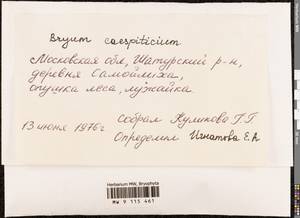 Bryum caespiticium
Московская обл, Шатурский р-н,
деревня Самойлиха,
опушка леса, лужайка
13 июня 1976г собрал Куликова Г.Г
Определил Игнатова Е.А
Herbarium MW, Bryophyta
MW 9 115 461